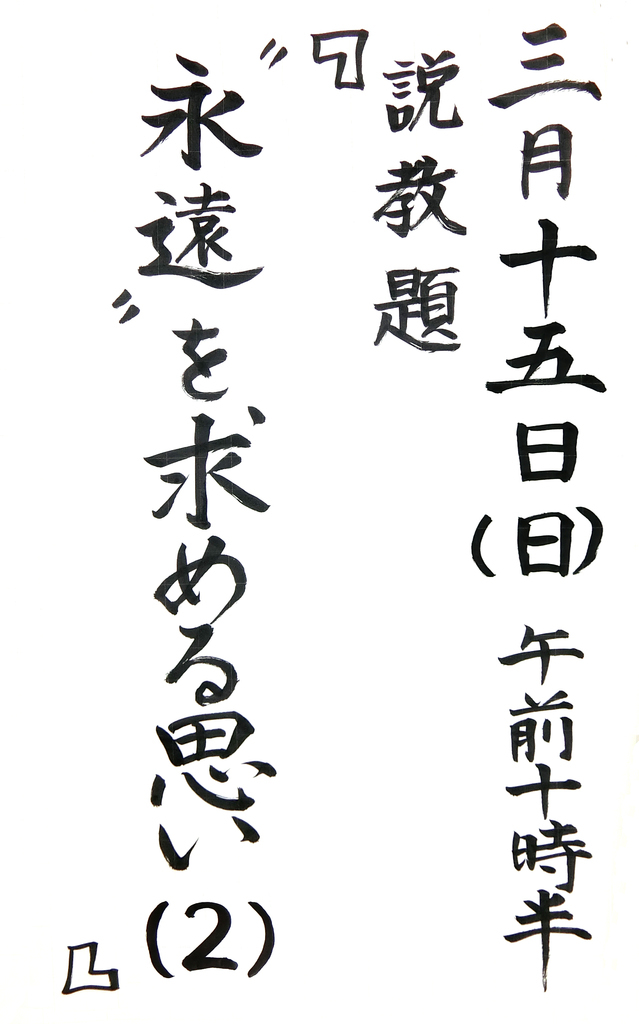 三月十五日(日) 午前十時半
説教題
『〝永遠〟を求める思い(2)』